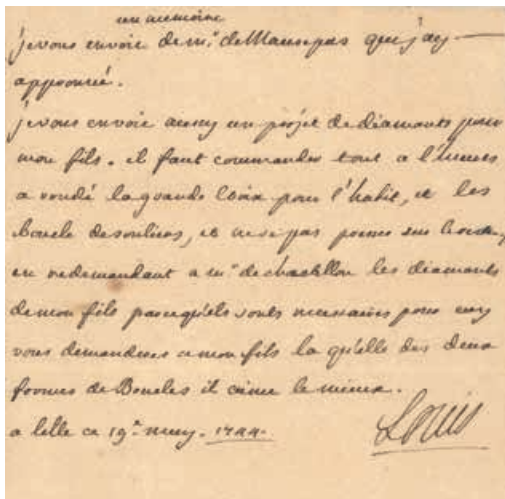 un memoire
je vous envoie de mr. de Maurepas que j'ay
approuvé.
je vous envoie aussy un projet de diamants pour
mon fils. il faut commander tout a l'heure
a rondé la grande Croix pour l'habit, et les
boucle de souliers, et ne se pas presser sur le
en redemandant a mr. de chastillon les diamants
de mon fils parcequ'els sont necessaires pour
vous demanderes a mon fils la qu'elle des deux
formes de Boucles il aime le mieux.
a lille ce 19e. may. 1744.
Louis